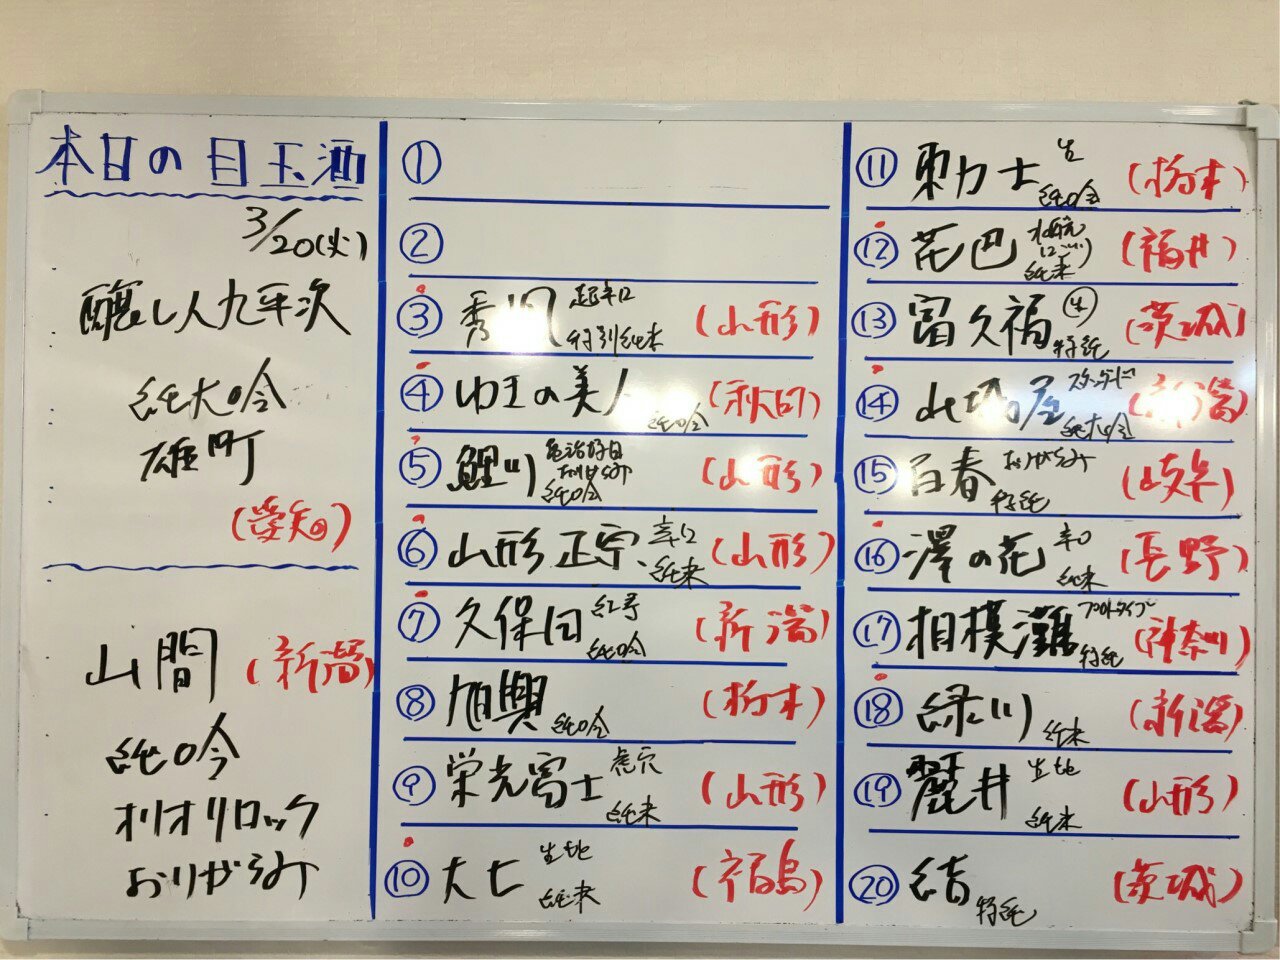 本日の目玉酒
3/20(火)
醸し人九平次
純大吟
雄町
(愛知)
山間 (新潟)
純吟
オリオリロック
おりがらみ
①
②
③ 秀鳳 超辛口 特別純米 (山形)
④ ゆきの美人 純吟 (秋田)
⑤ 鯉川 純吟 (山形)
⑥ 山形正宗 辛口 純米 (山形)
⑦ 久保田 紅寿 純吟 (新潟)
⑧ 旭興 純吟 (栃木)
⑨ 栄光冨士 虎穴 純米 (山形)
⑩ 大七 生もと 純米 (福島)
⑪ 東力士 生 純吟 (栃木)
⑫ 花巴 水酛 純米 (福井)
⑬ 富久福 特純 (茨城)
⑭ スタンダード (新潟)
⑮ 百春 おりがらみ 特純 (岐阜)
⑯ 澤の花 辛口 純米 (長野)
⑰ 相模灘 プロトタイプ 特純 (神奈川)
⑱ 緑川 純米 (新潟)
⑲ 麓井 生もと 純米 (山形)
⑳ 結 特純 (茨城)